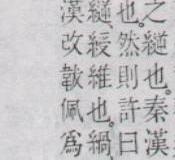 之縌也。秦漢
也。然則許曰
縌綬維也。緺
漢改韍佩爲